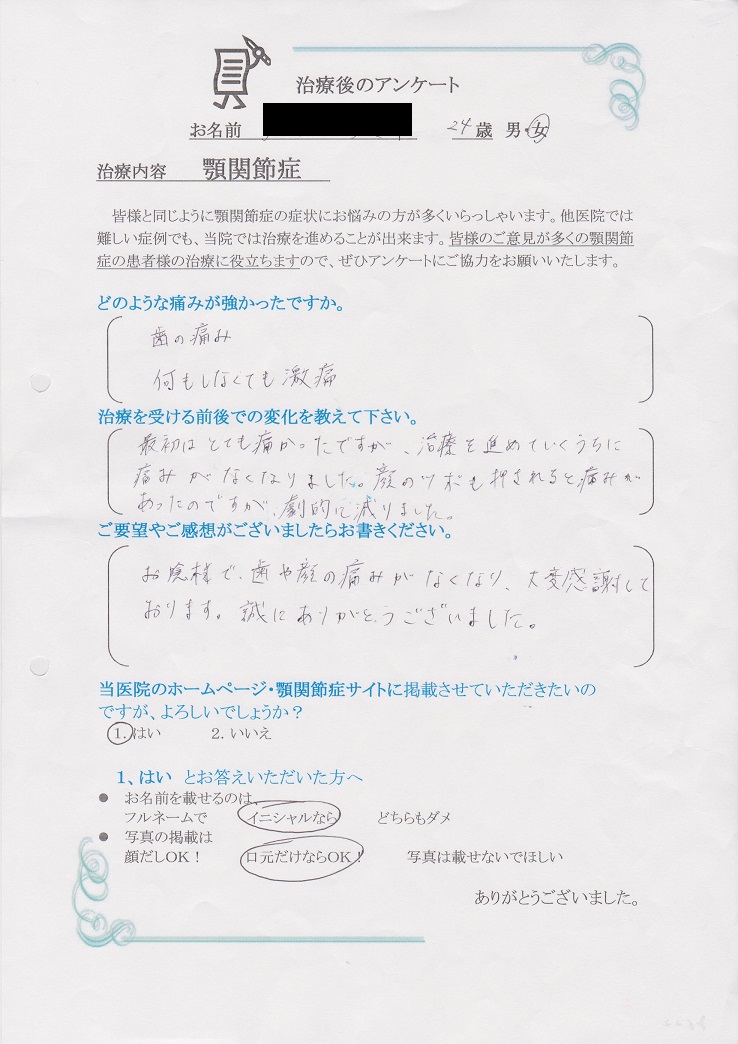 治療後のアンケート
お名前 24歳 男・女
治療内容 顎関節症
皆様と同じように顎関節症の症状にお悩みの方が多くいらっしゃいます。他医院では
難しい症例でも、当院では治療を進めることが出来ます。皆様のご意見が多くの顎関節
症の患者様の治療に役立ちますので、ぜひアンケートにご協力をお願いいたします。
どのような痛みが強かったですか。
歯の痛み
何もしなくても激痛
治療を受ける前後での変化を教えて下さい。
最初はとても痛かったですが、治療を進めていくうちに
痛みがなくなりました。顔のツボも押されると痛みが
あったのですが、劇的に減りました。
ご要望やご感想がございましたらお書きください。
お陰様で、歯や顔の痛みがなくなり、大変感謝して
おります。誠にありがとうございました。
当医院のホームページ・顎関節症サイトに掲載させていただきたいの
ですが、よろしいでしょうか？
1. はい 2. いいえ
1、はい とお答えいただいた方へ
● お名前を載せるのは、
フルネームで イニシャルなら どちらもダメ
● 写真の掲載は
顔だしOK！ 口元だけならOK！ 写真は載せないでほしい
ありがとうございました。